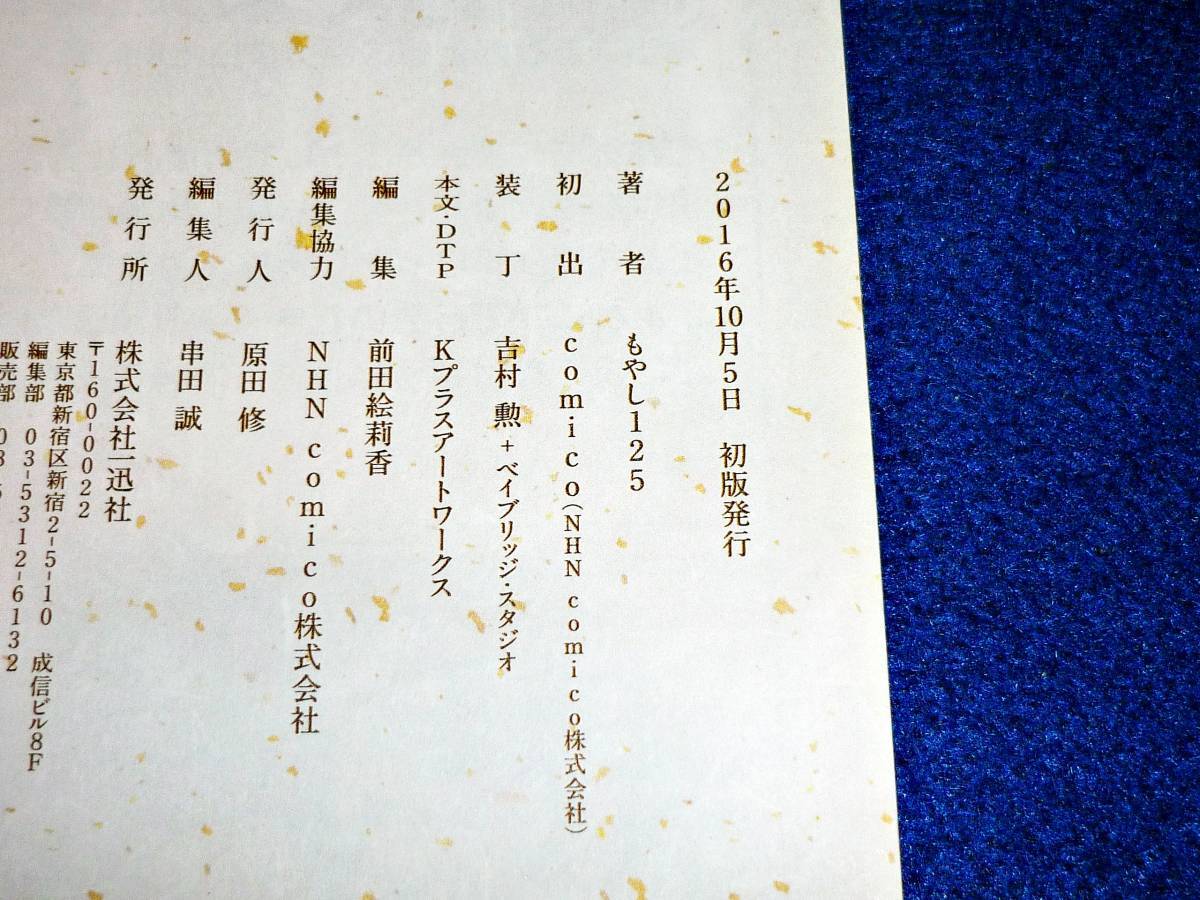 2016年10月5日 初版発行
著者 もやし125
初出 comico(NHN comico株式会社)
装丁 吉村 勲+ベイブリッジ・スタジオ
本文・DTP Kプラスアートワークス
編集 前田絵莉香
編集協力 NHN comico株式会社
発行人 原田 修
編集人 串田 誠
発行所 株式会社一迅社
〒160-0022
東京都新宿区新宿2-5-10 成信ビル8F
編集部 03-5312-6132
販売部